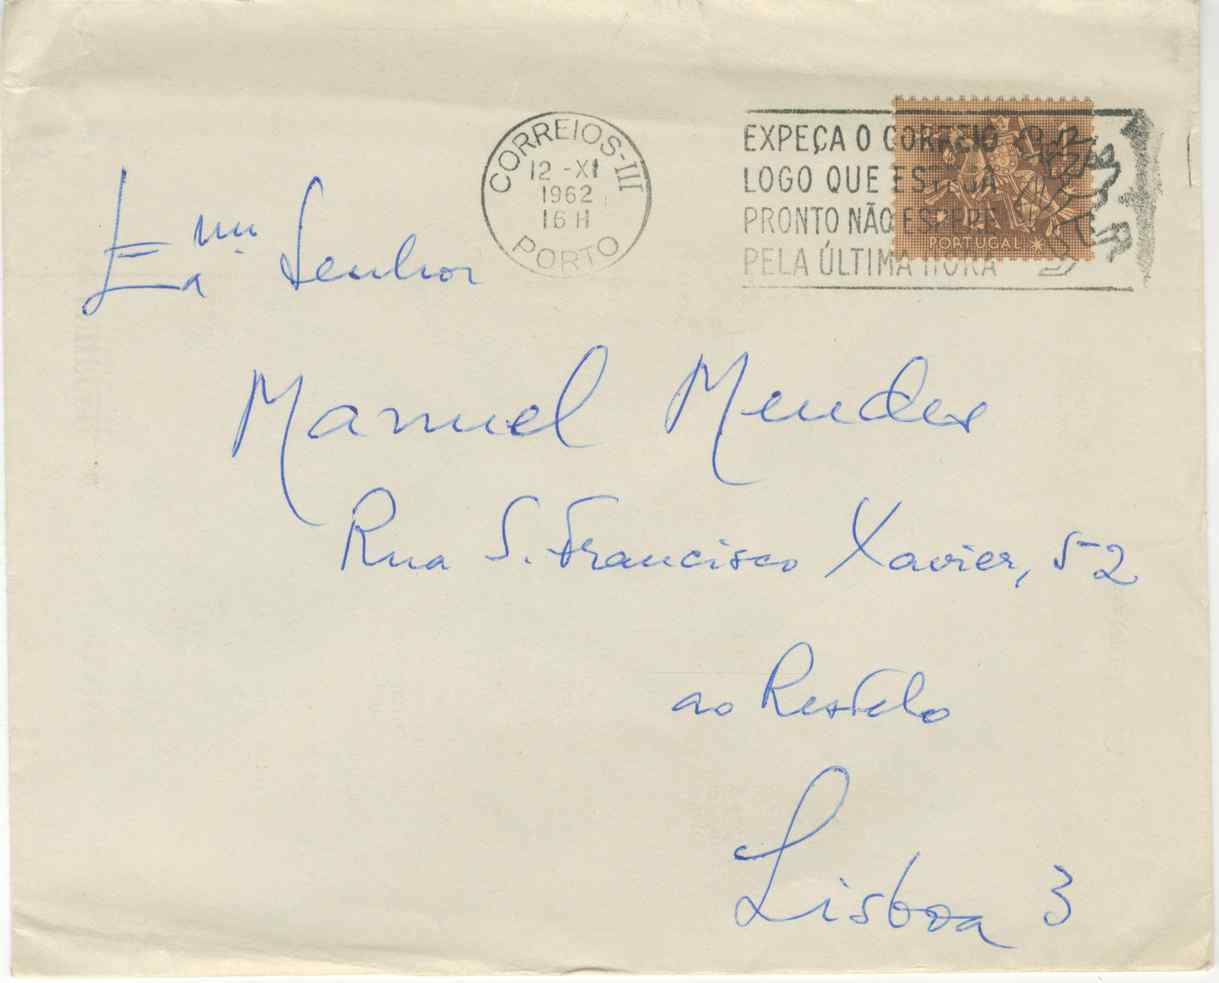 CORREIOS-III
12-XI
1962
16 H
PORTO
EXPEÇA O CORREIO
LOGO QUE ESTEJA
PRONTO NÃO ESPERE
PELA ÚLTIMA HORA
PORTUGAL
Exmº Senhor
Manuel Mendes
Rua S. Francisco Xavier, 52
ao Restelo
Lisboa 3